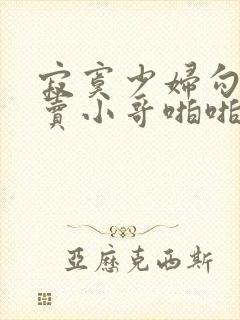 寂寞少婦勾
賣小哥啪啪
亞歷克西斯